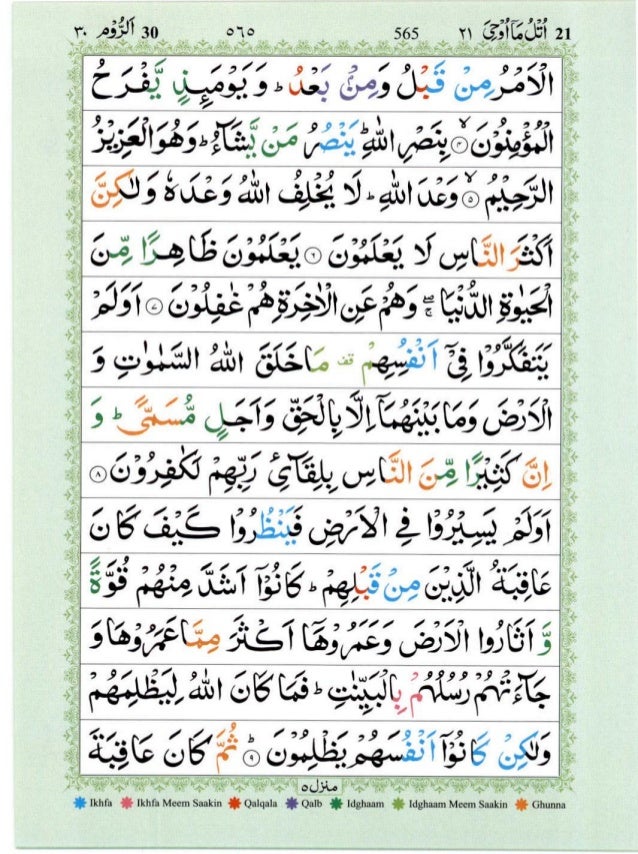 30 اَلرُّوۡم ۳۰ ۵۶۵ 565 اُتۡلُ مَاۤ اُوۡحِیَ ۲۱ 21
الۡاَمۡرُ مِنۡ قَبۡلُ وَمِنۡۢ بَعۡدُ ؕ وَيَوۡمَئِذٍ يَّفۡرَحُ
الۡمُؤۡمِنُوۡنَ ۙ‏﴿۴﴾ بِنَصۡرِ اللّٰهِ ؕ يَنۡصُرُ مَنۡ يَّشَآءُ ؕ وَهُوَ الۡعَزِيۡزُ
الرَّحِيۡمُ ۙ‏﴿۵﴾ وَعۡدَ اللّٰهِ ؕ لَا يُخۡلِفُ اللّٰهُ وَعۡدَهٗ وَلٰـكِنَّ
اَكۡثَرَ النَّاسِ لَا يَعۡلَمُوۡنَ ‏﴿۶﴾ يَعۡلَمُوۡنَ ظَاهِرًا مِّنَ
الۡحَيٰوةِ الدُّنۡيَا ۖۚ وَهُمۡ عَنِ الۡاٰخِرَةِ هُمۡ غٰفِلُوۡنَ ‏﴿۷﴾ اَوَلَمۡ
يَتَفَكَّرُوۡا فِىۡۤ اَنۡفُسِهِمۡ قف مَا خَلَقَ اللّٰهُ السَّمٰوٰتِ وَ
الۡاَرۡضَ وَمَا بَيۡنَهُمَاۤ اِلَّا بِالۡحَقِّ وَاَجَلٍ مُّسَمًّى ؕ وَ
اِنَّ كَثِيۡرًا مِّنَ النَّاسِ بِلِقَآئِ رَبِّهِمۡ لَـكٰفِرُوۡنَ ‏﴿۸﴾
اَوَلَمۡ يَسِيۡرُوۡا فِى الۡاَرۡضِ فَيَنۡظُرُوۡا كَيۡفَ كَانَ
عَاقِبَةُ الَّذِيۡنَ مِنۡ قَبۡلِهِمۡ ؕ كَانُوۡۤا اَشَدَّ مِنۡهُمۡ قُوَّةً
وَّ اَثَارُوا الۡاَرۡضَ وَعَمَرُوۡهَاۤ اَكۡثَرَ مِمَّا عَمَرُوۡهَا وَ
جَآءَتۡهُمۡ رُسُلُهُمۡ بِالۡبَيِّنٰتِ ؕ فَمَا كَانَ اللّٰهُ لِيَظۡلِمَهُمۡ
وَلٰـكِنۡ كَانُوۡۤا اَنۡفُسَهُمۡ يَظۡلِمُوۡنَ ؕ‏﴿۹﴾ ثُمَّ كَانَ عَاقِبَةَ
منزل ۵
Ikhfa Ikhfa Meem Saakin Qalqala Qalb Idghaam Idghaam Meem Saakin Ghunna